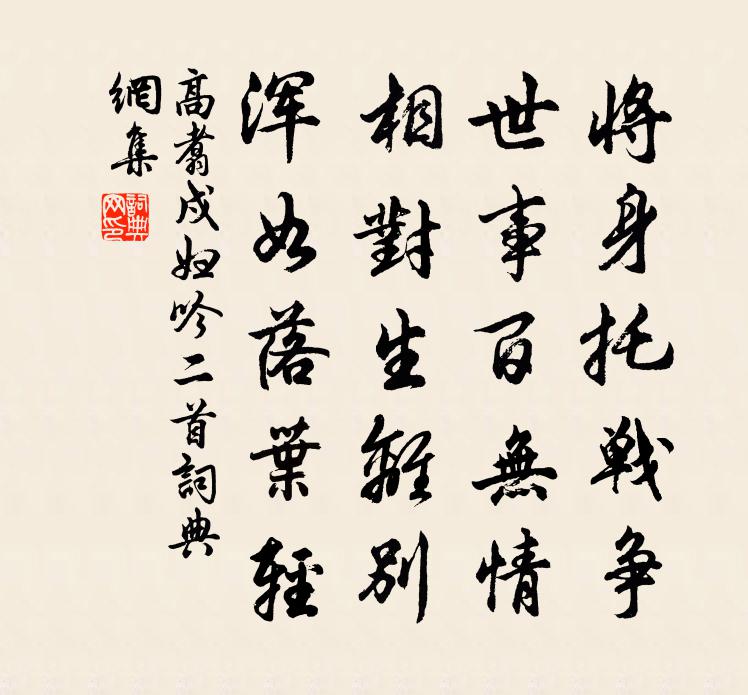 將身托戰爭
世事百無情
相對生離別
渾如落葉輕
高翥戍婦吟二首詞典
網集
詞典
网印